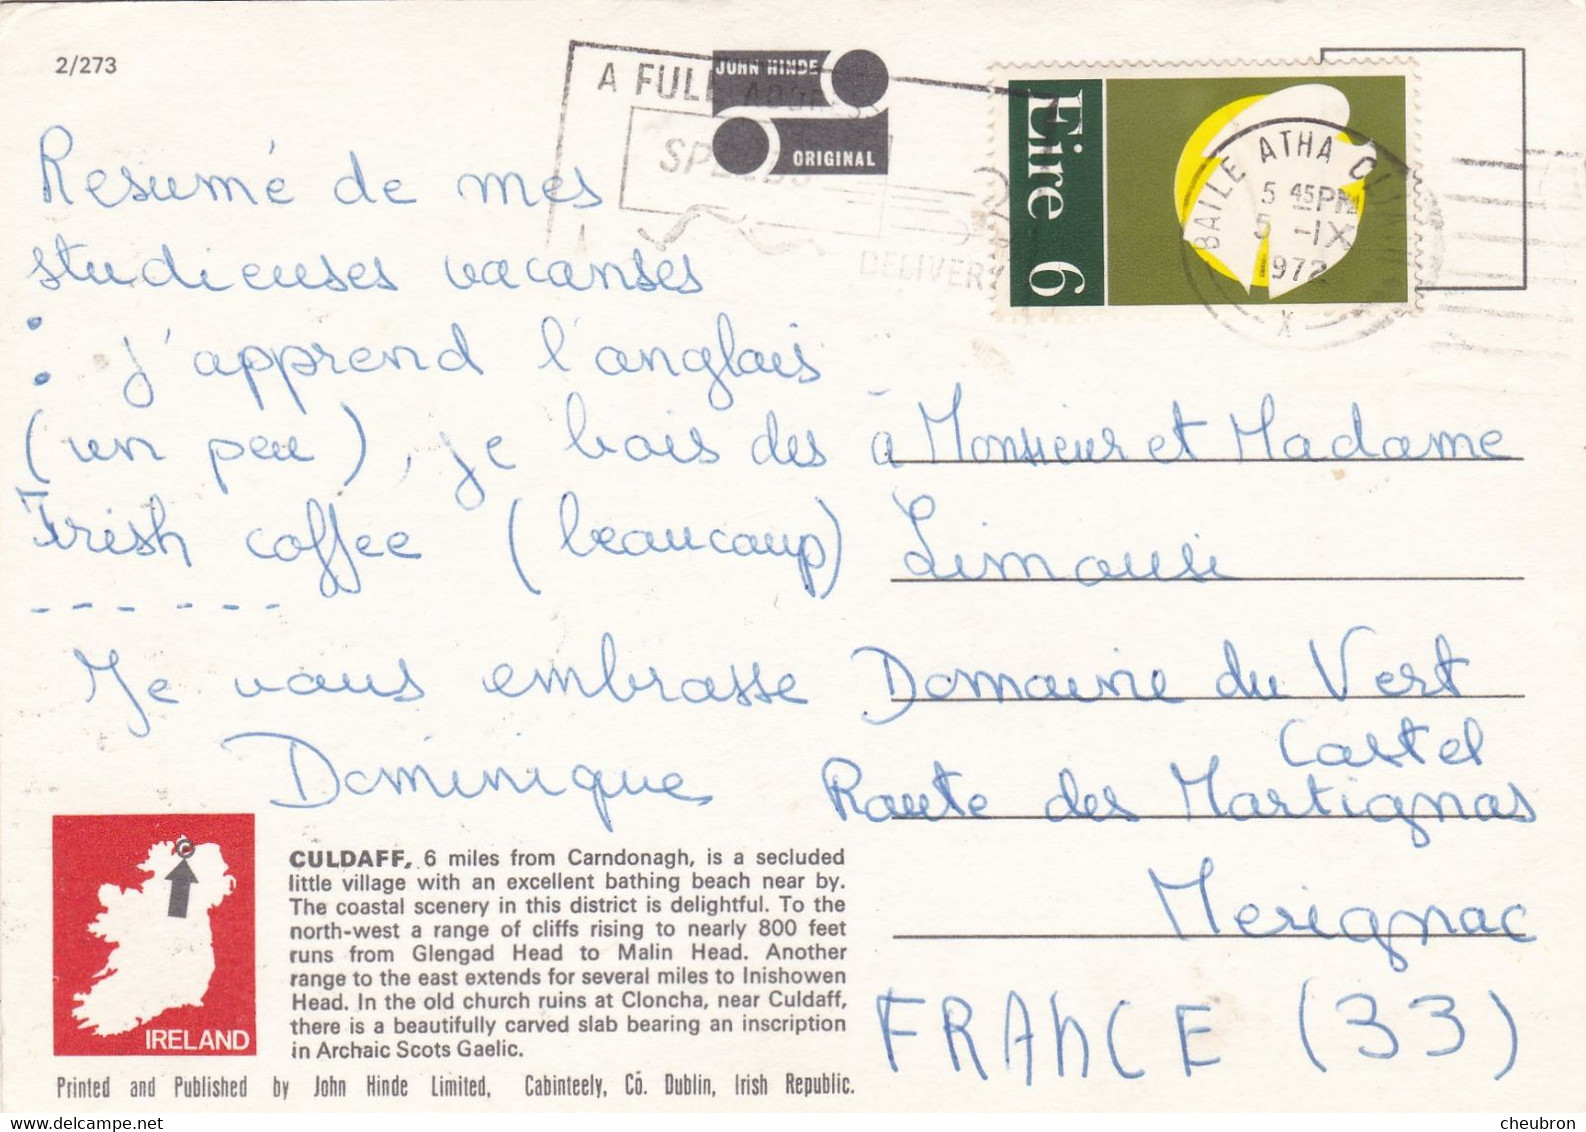 2/273
A FULL ADDRESS
SPEEDS
DELIVERY
JOHN HINDE
ORIGINAL
Eire 6
BAILE ATHA CLIATH
5 45PM
5 -IX
1972
X
Resumé de mes
studieuses vacances
: J'apprend l'anglais
(un peu), je bois des
Irish coffee (beaucoup)
- - - - - -
Je vous embrasse
Dominique
à Monsieur et Madame
Limousi
Domaine du Vert
Castel
Route des Martignas
Merignac
FRANCE (33)
IRELAND
CULDAFF, 6 miles from Carndonagh, is a secluded
little village with an excellent bathing beach near by.
The coastal scenery in this district is delightful. To the
north-west a range of cliffs rising to nearly 800 feet
runs from Glengad Head to Malin Head. Another
range to the east extends for several miles to Inishowen
Head. In the old church ruins at Cloncha, near Culdaff,
there is a beautifully carved slab bearing an inscription
in Archaic Scots Gaelic.
Printed and Published by John Hinde Limited, Cabinteely, Co. Dublin, Irish Republic.
cheubron